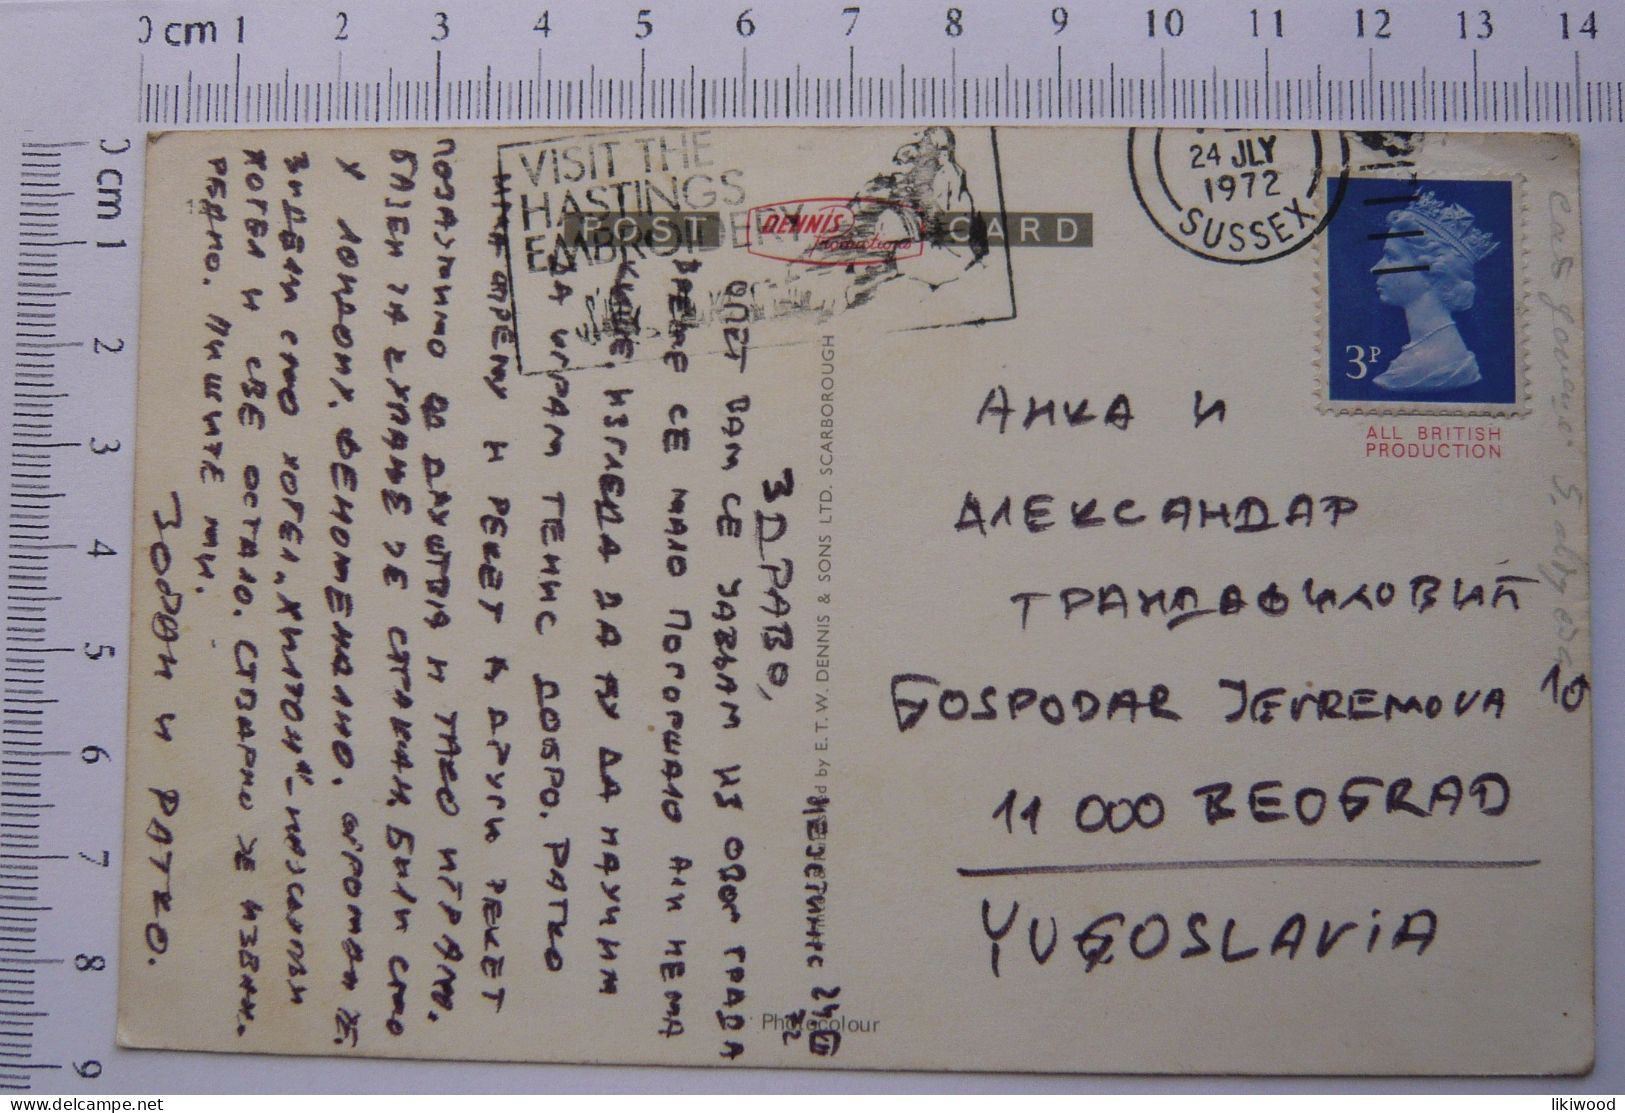 0 cm 1 2 3 4 5 6 7 8 9 10 11 12 13 14
0 cm 1 2 3 4 5 6 7 8 9
VISIT THE
HASTINGS
EMBROIDERY
POST CARD
DENNIS
Productions
24 JLY
1972
SUSSEX
3P
ALL BRITISH
PRODUCTION
by E. T. W. DENNIS & SONS LTD. SCARBOROUGH
Photocolour
ХЕЈСТИНГС 24.VII
72
ЗДРАВО,
ОПЕТ ВАМ СЕ ЈАВЉАМ ИЗ ОВОГ ГРАДА
ВРЕМЕ СЕ МАЛО ПОГОРШАЛО АЛИ НЕМА
КИШЕ, ИЗГЛЕДА ДА ЋУ ДА НАУЧИМ
ДА ИГРАМ ТЕНИС ДОБРО. РАТКО
ИМА ОПРЕМУ И РЕКЕТ А ДРУГИ РЕКЕТ
ПОЗАЈМИМО ОД ДРУШТВА И ТАКО ИГРАМО.
БАЗЕН ЗА КУПАЊЕ ЈЕ СЈАЈАН. БИЛИ СМО
У ЛОНДОНУ. ФЕНОМЕНАЛНО. ОГРОМАН ЈЕ.
ВИДЕЛИ СМО ХОТЕЛ „ХИЛТОН" - НАЈСКУПЉИ
ХОТЕЛ И СВЕ ОСТАЛО. СТВАРНО ЈЕ ИЗВАН-
РЕДНО. ПИШИТЕ МИ.
ЗОРАН И РАТКО.
АНКА И
АЛЕКСАНДАР
ТРАНДАФИЛОВИЋ
GOSPODAR JEVREMOVA 10
11 000 BEOGRAD
YUGOSLAVIA
likiwood